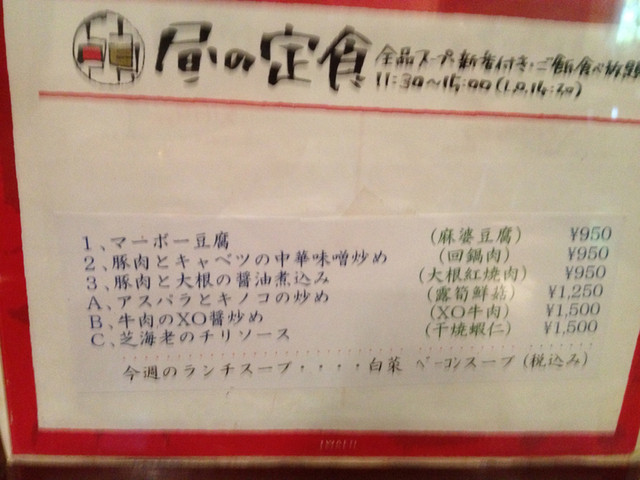 昼の定食
全品スープ 新香付き・ご飯食べ放題
11:30~15:00 (L.O.14:30)
1、マーボー豆腐 (麻婆豆腐) ¥950
2、豚肉とキャベツの中華味噌炒め (回鍋肉) ¥950
3、豚肉と大根の醤油煮込み (大根紅焼肉) ¥950
A、アスパラとキノコの炒め (露筍鮮菇) ¥1,250
B、牛肉のXO醤炒め (XO牛肉) ¥1,500
C、芝海老のチリソース (干焼蝦仁) ¥1,500
今週のランチスープ・・・・白菜 ベーコンスープ (税込み)